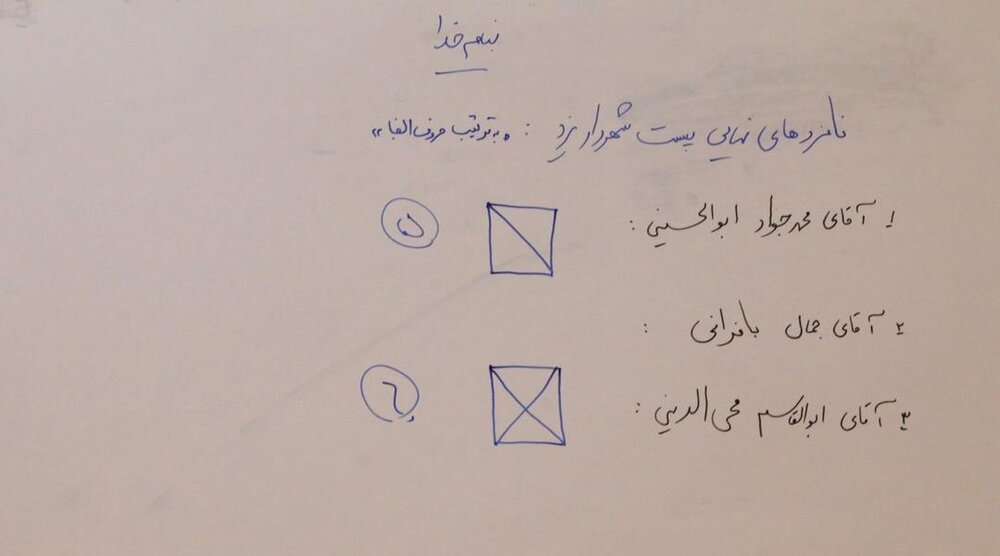 بنام خدا
نامزدهای نهایی پست شهردار یزد : «به ترتیب حروف الفبا»
۱ـ آقای محمدجواد ابوالحسینی : ۵
۲ـ آقای جمال بافرانی :
۳ـ آقای ابوالقاسم محی الدینی : ۶